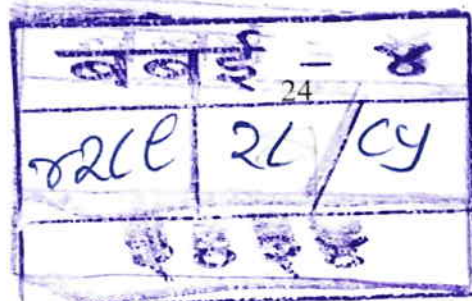 बबई - ४
24
४२८९ २८ / ८५
२०२४